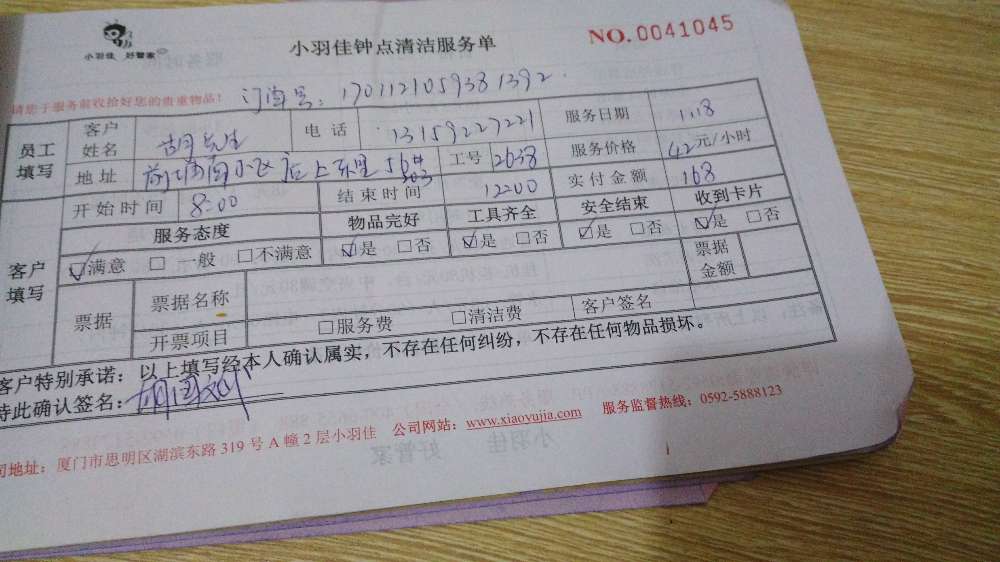 小羽佳 好管家
小羽佳钟点清洁服务单
NO.0041045
请您于服务前收拾好您的贵重物品!
订单号: 1701121059381392
员工填写 客户姓名 胡先生 电话 13159227221 服务日期 1.18
地址 后上东里 56# 303 工号 2638 服务价格 42元/小时
开始时间 8:00 结束时间 12:00 实付金额 168
客户填写 服务态度 物品完好 工具齐全 安全结束 收到卡片
☑满意 □一般 □不满意 ☑是 □否 ☑是 □否 ☑是 □否 ☑是 □否
票据 票据名称 票据金额
开票项目 □服务费 □清洁费 客户签名
客户特别承诺:以上填写经本人确认属实,不存在任何纠纷,不存在任何物品损坏。
特此确认签名:
司地址:厦门市思明区湖滨东路 319 号 A 幢 2 层小羽佳 公司网站:www.xiaoyujia.com 服务监督热线:0592-5888123